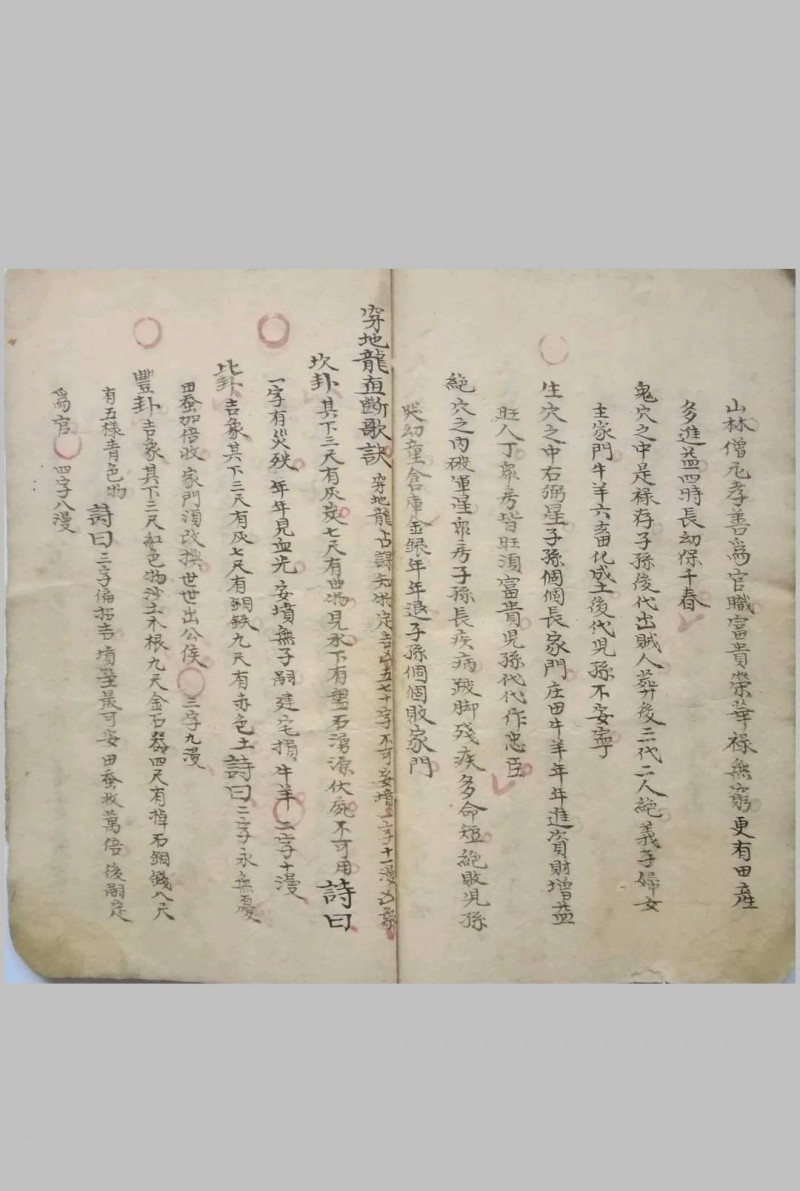 山林僧尼孝善為官職富貴榮華祿無窮更有田產
多進益四時長幼保千春
鬼穴之中是祿存子孫後代出賊人葬後三代二人絕義子婦女
主家門牛羊六畜化成土後代児孫不安寧
生穴之中右弼星子孫個個長家門庄田牛羊年年進資財增益
旺人丁眾房皆旺須富貴児孫代代作忠臣
絕穴之內破軍星眾房子孫長疾病跛脚殘疾多命短絕敗児孫
哭幼童倉庫金銀年年退子孫個個敗家門
穿地龍直斷歌訣 穿地龍占課知 定吉凶五七十字不可安墳二字十一漫凶象
坎卦 其下三尺有灰炭七尺有曲物見水下有盤石湧源伏屍不可用 詩曰
一字有災殃 年年見血光 安墳無子嗣 建宅損牛羊 〇 二字十漫
比卦 吉象其下三尺有灰七尺有銅鉄九尺有赤色土 詩曰 二字永無憂
田蚕加倍收 家門須改換 世世出公侯 〇 三字九漫
豐卦 吉象其下三尺紅色物沙土木根九尺金石器四尺有掉石銅鉄八尺
有五樣青色物 詩曰 三字偏招吉 墳塋最可安 田蚕收萬倍 後嗣定
為官 〇 四字八漫